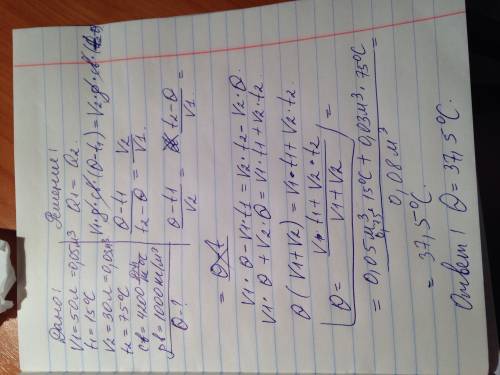 Дано: Решение:
V1=50л=0,05м3 Q1 = Q2
t1=15°C V1·ρ·cв(θ-t1)=V2·ρ·cв(t2-θ)
V2=30л=0,03м3 θ-t1 / t2-θ = V2 / V1
t2=75°C
cв=4200 °C θ-t1 / V2 = t2-θ / V1 =
ρв=1000кг/м3
θ-?
=
V1·θ-V1·t1=V2·t2-V2·θ
V1·θ+V2·θ=V1·t1+V2·t2
θ(V1+V2)=V1·t1+V2·t2
θ= V1·t1+V2·t2 / V1+V2 =
= 0,05м3·15°C+0,03м3·75°C / 0,08м3 =
= 37,5°C
Ответ: θ=37,5°C